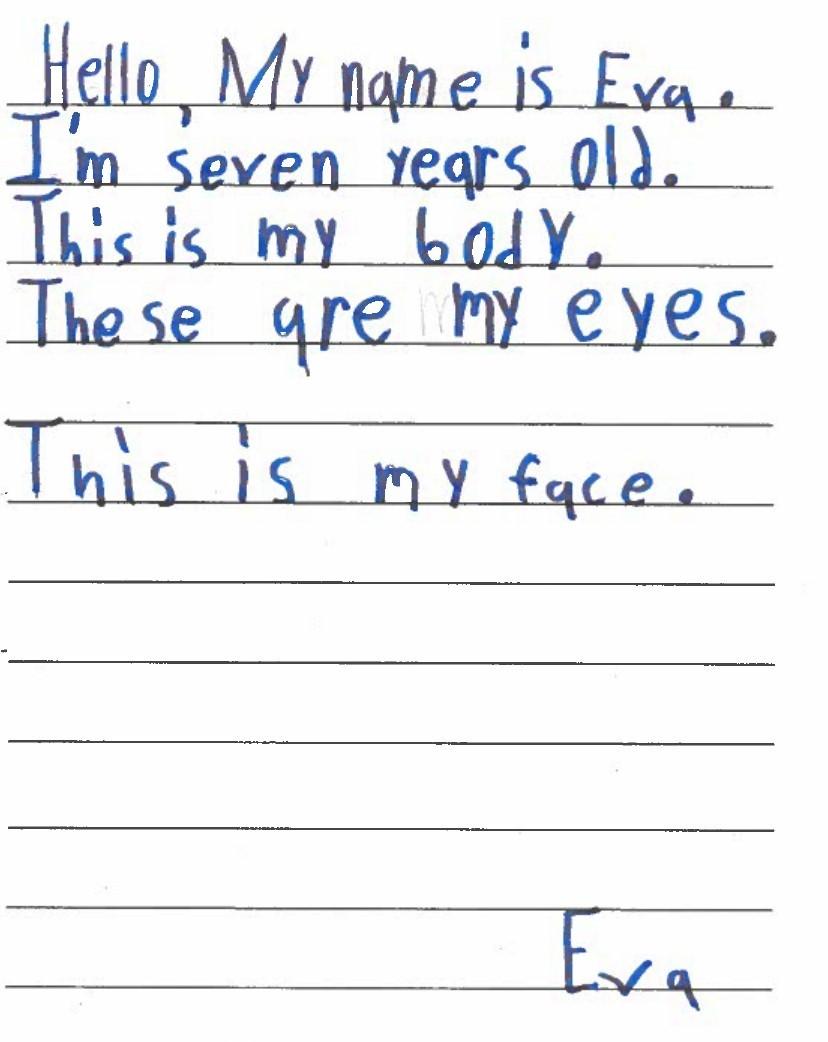 Hello, My name is Eva.
I'm seven years old.
This is my body.
These are my eyes.
This is my face.
Eva